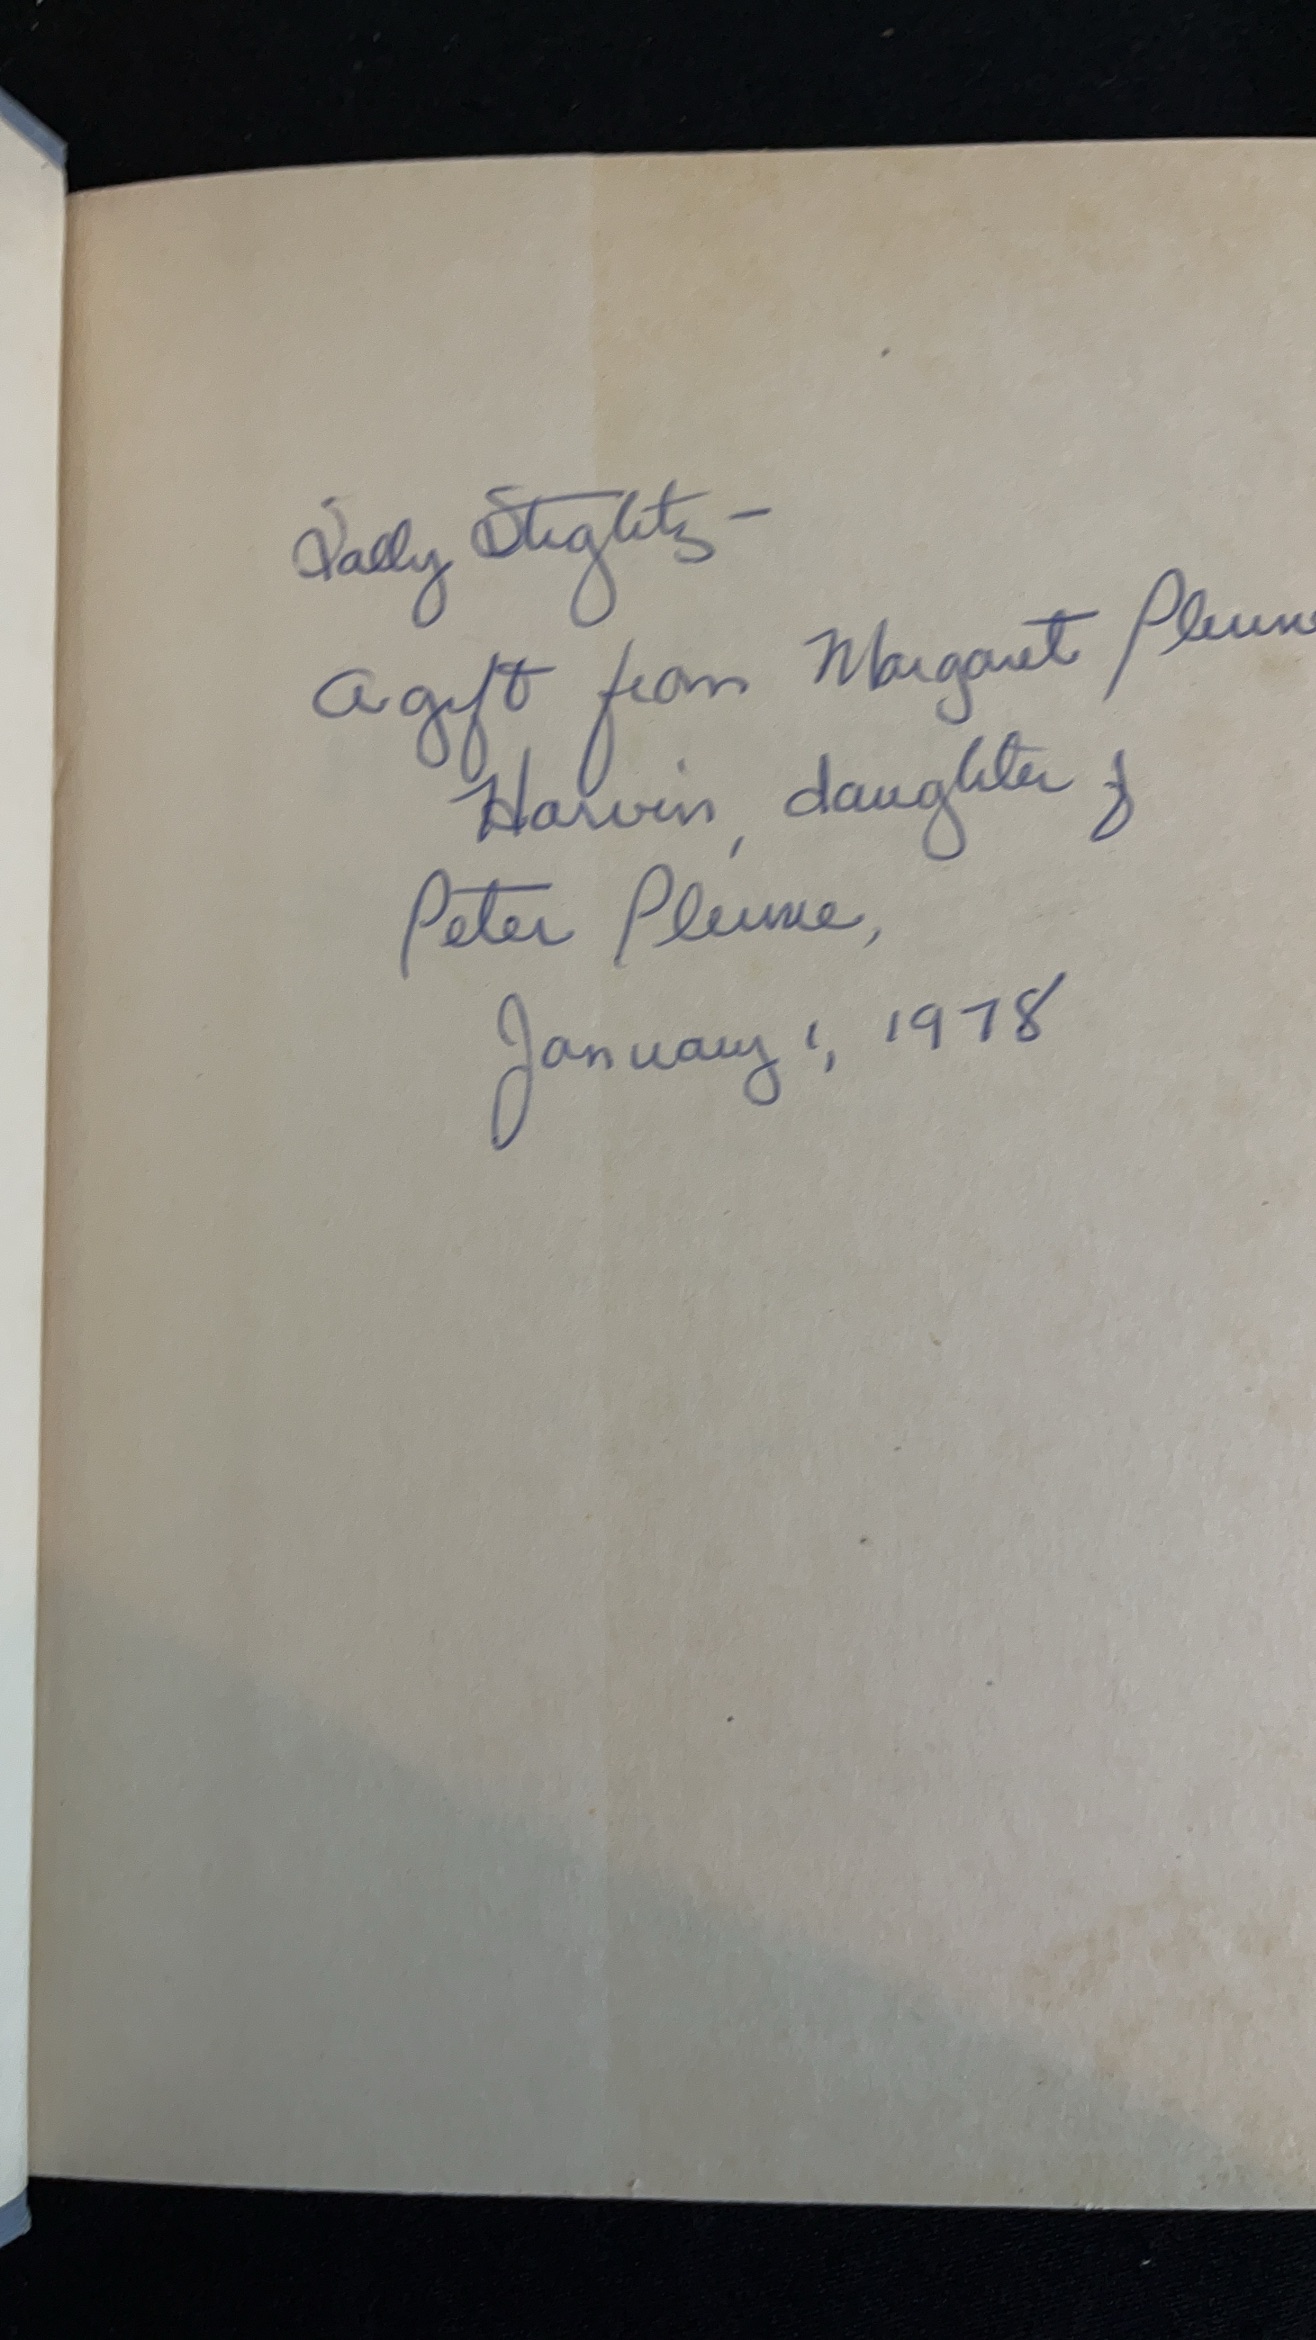 Sally Stieglitz –
a gift from Margaret Plume
Harvin, daughter of
Peter Plume,
January 1, 1978